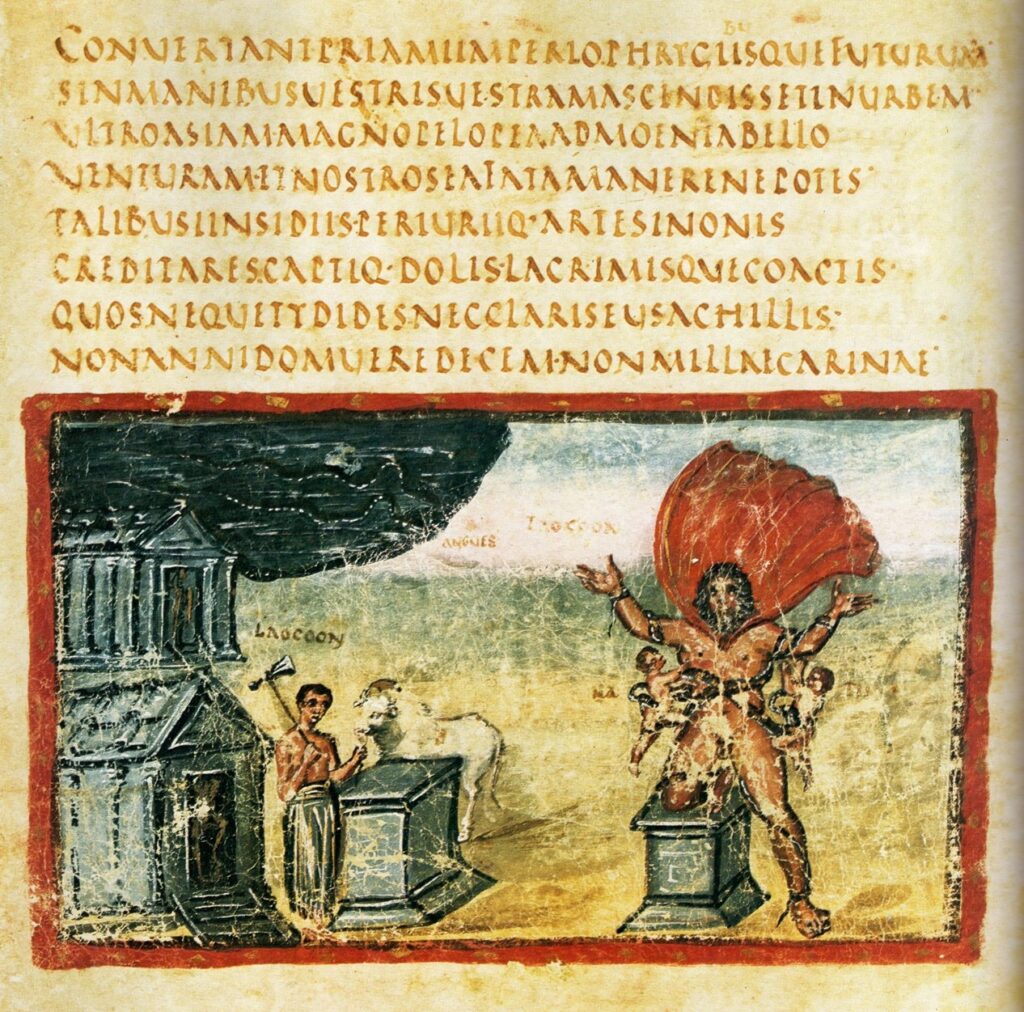 BU
CONUERTANTPRIAMIIMPERIOPHRYGIISQUEFUTURUM
SINMANIBUSUESTRISUESTRAMASCENDISSETINURBEM
ULTROASIAM·MAGNOPELOPEAADMOENIABELLO
UENTURAM·ETNOSTROSEAFATAMANERENEPOTES
TALIBUSIINSIDIIS·PERIURIIQ·ARTESINONIS
CREDITARES·CAPTIQ·DOLIS·LACRIMISQUECOACTIS·
QUOSNEQUETYDIDESNECCLARISEUSACHILLIS·
NONANNIDOMUEREDECEM·NONMILLAECARINAE
LAOCOON
ANGUES
LAOCOON
NA
TI